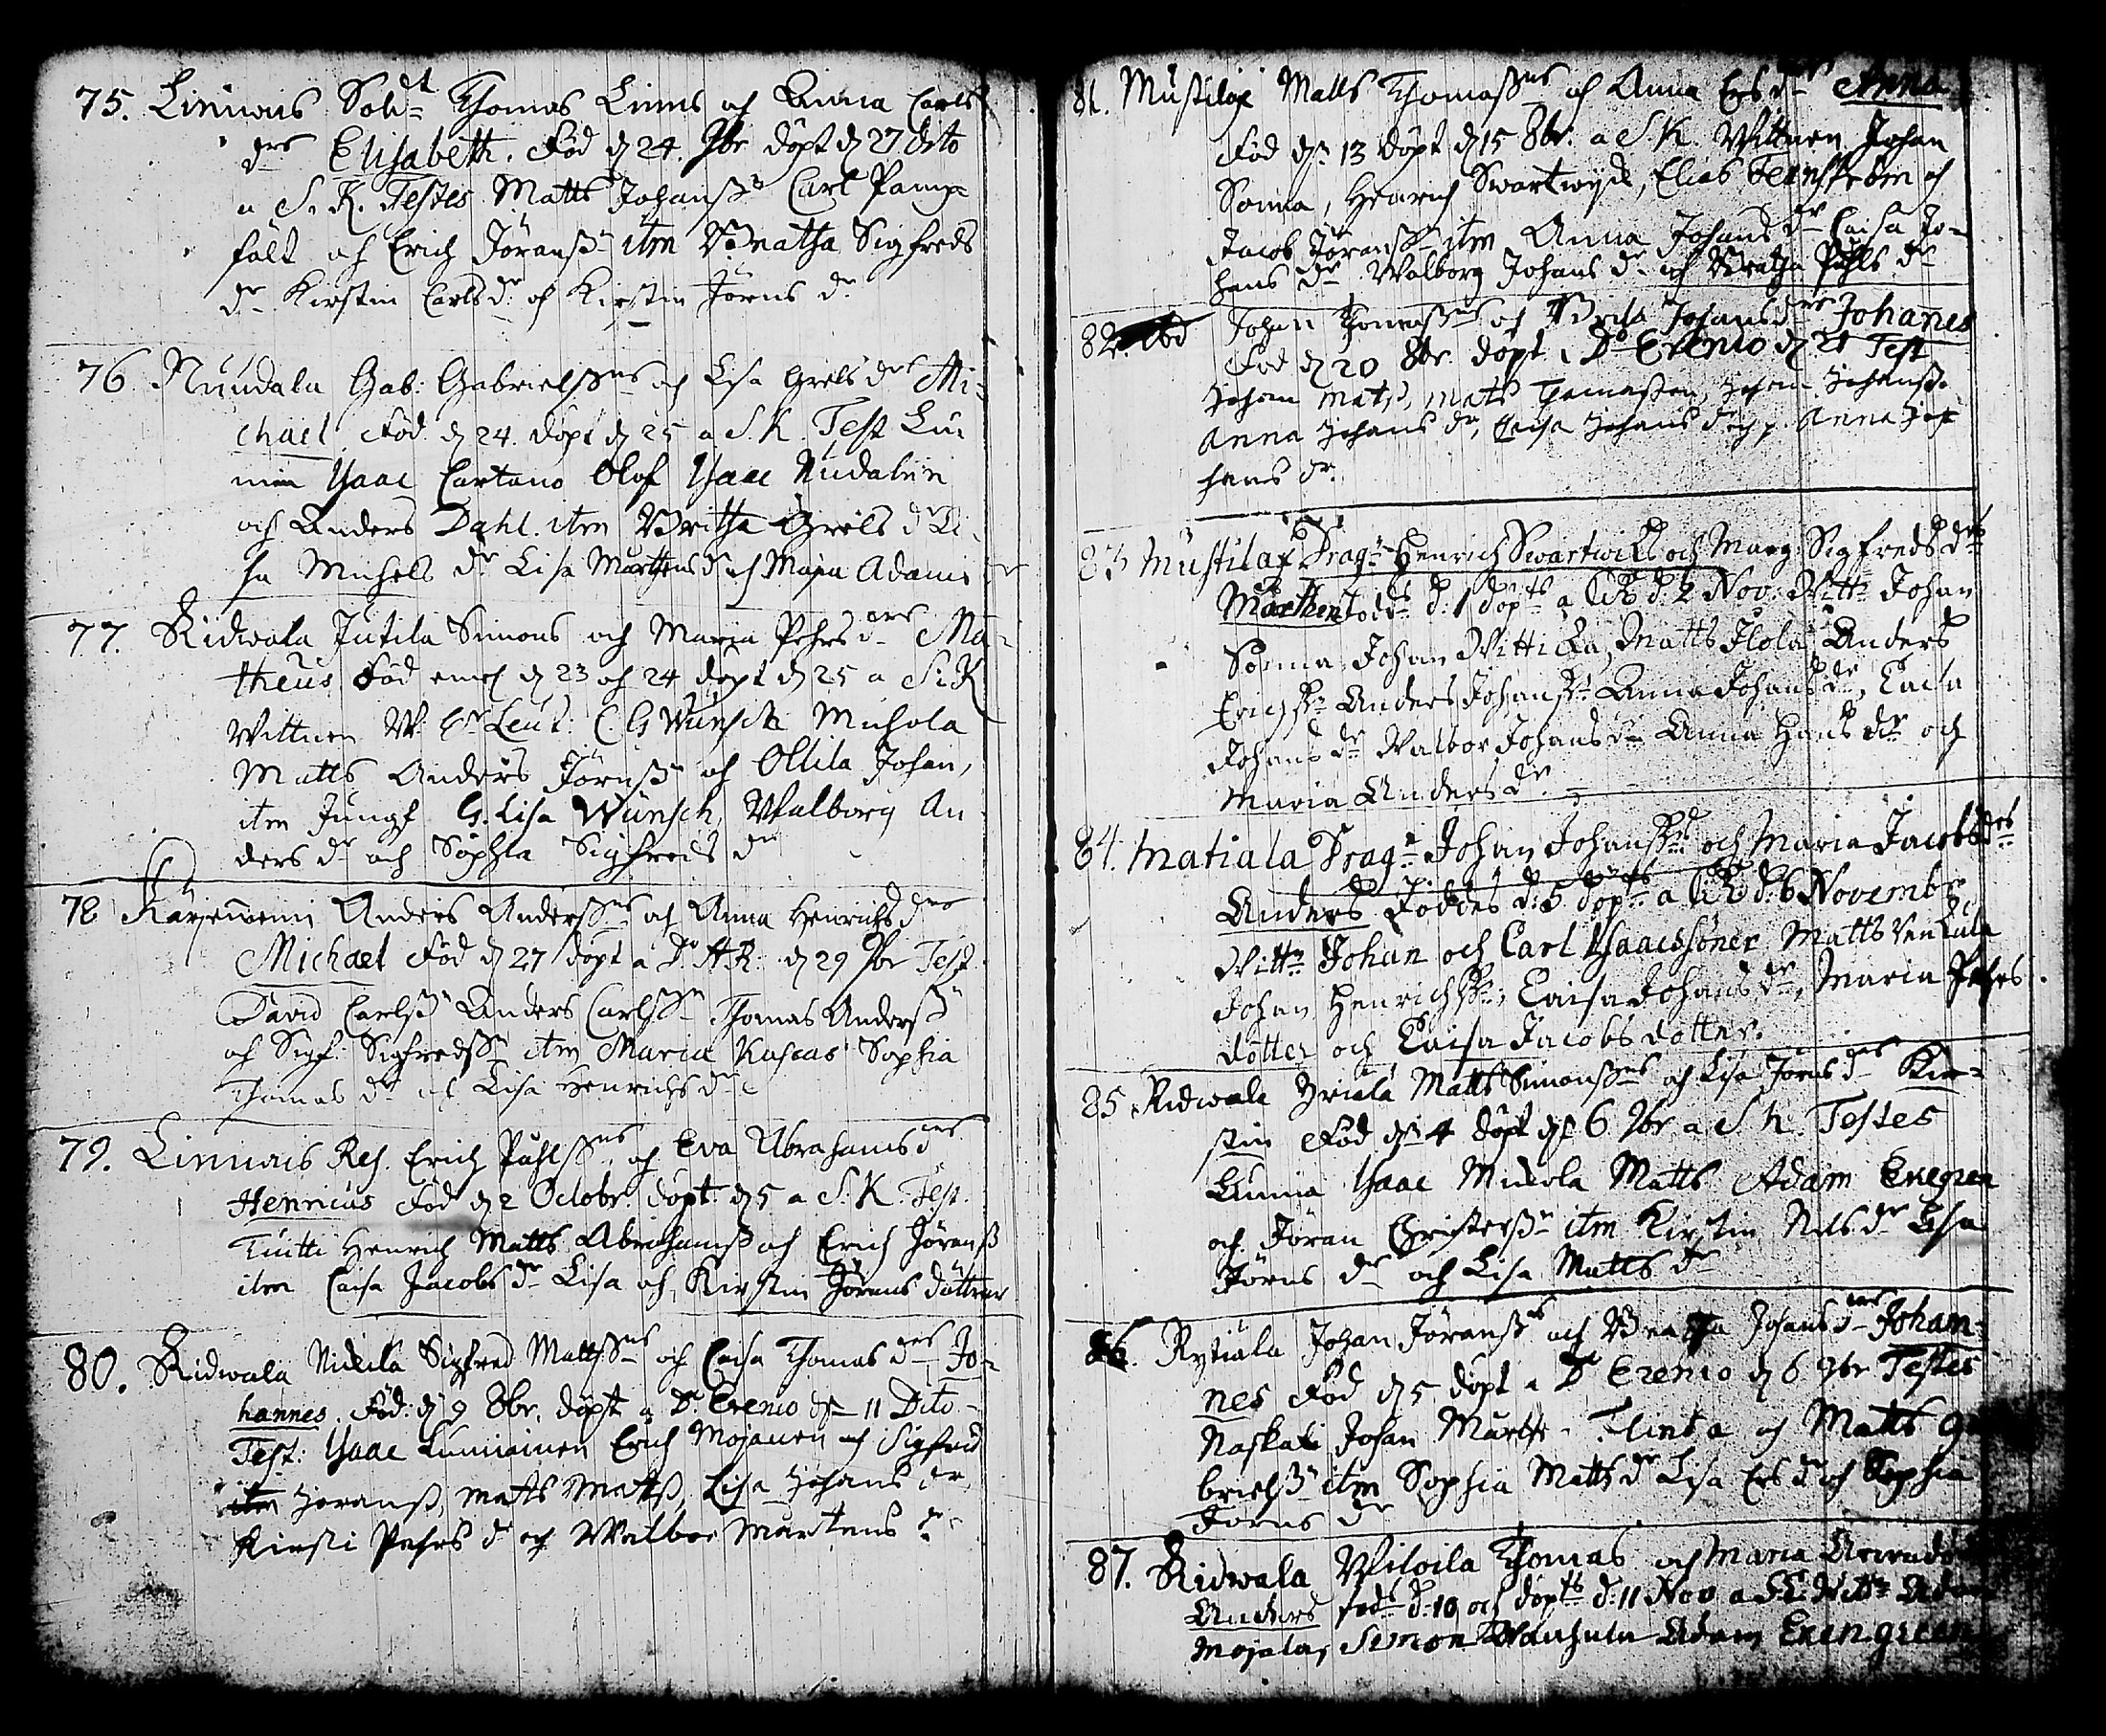 75. Linnais Soldt Thomas Linnis och Anna Carls
drs Elisabeth. Född d 24. 7br döpt d 27 dito
a S. K. Testes Matts Johansson Carl Pamp=
fält och Erich Jöransson itm Beatha Sigfreds
dr Kirstin Carlsdr och Kirstin Jörns dr
76 Nundala Gab: Gabrielssons och Lisa Grels drs Mi=
chael Född d 24. döpt d 25 a S. K. Test
Isaac Cartano Olof Isaac Nudalin
och Anders Dahl. itm Britha Grels dr Li
sa Michels dr Lisa Mårthens d och Maja Adams
77. Ridwala Jutila Simons och Maria Pehrs drs Ma=
theus Född emel d 23 och 24 döpt d 25 a S. K
Wittnen W. Leut: C. G Wunsch Michola
Matts Anders Jörnsson och Ollila Johan,
itm Jungf G. Lisa Wunsch, Walborg An
ders dr och Sophia Sigfreds dr
78 Anders Anderssons och Anna Henrichs drs
Michael Född d 27 döpt a Dr A. K: d 29 7br Test
David Carlsson Anders Carlsson Thomas Andersson
och Sigf: Sigfredsson itm Maria Sophia
Thomas dr och Lisa Henrichs dr
79. Linnais Erich Påhlssons och Eva Abrahams drs
Henricus Född d 2 Octobr. döpt d 5 a S. K. Test.
Tuitti Henrich Matts Abrahamsson och Erich Jöransson
itm Caisa Jacobs dr Lisa och Kirstin Jörens döttrar
80. Ridwala Nickila Sigfred Mattssons och Caisa Thomas drs Jo=
hannes. Föd: d 9 8br. döpt a Dr Erenio d 11 Dito
Test: Isaac Lumiainen Erich Mojanen och Sigfred
itm Joransson, Matts Mattsson, Lisa Johans dr
Kirsti Pehrs d och Walbor Martens dr
81. Mustilax Matts Thomassons och Anna Ers drs Anna
Född d 13 döpt d 15 8br. a S. K. Wittnen Johan
Sonna, Henrich Swartwijk, Elias Fernström och
Jacob Jöransson itm Anna Johans dr Caisa Jo=
hans dr Walborg Johans dr och Beatha Påhls dr
82. Ibd Johan Thomassons och Brita Johans drs Johanes
Född d 20 8br. döpt a Dr Erenio d 21 Test
Johan Mats, Mats Tomassen, Johan Johansso
Anna Johans dr, Caisa Johans d och Anna Jo
hans dr.
83 Mustilax Dragn Henrich Swartwik och Marg: Sigfreds drs
Mårthen Föddes d: 1 döptes a d: 2 Nov: Wittn Johan
Sonna, Johan Wittikka, Matts Ilola, Anders
Erichsson Anders Johansson Anna Johans dr, Caisa
Johans dr Walbor Johans dr Anna Hans dr och
Maria Anders dr.
84. Matiala Dragn Johan Johanssons och Maria Jacobs drs
Anders Föddes d: 5 döptes a d: 6 Novembr
Wittn Johan och Carl Isaacssöner Matts Venkula
Johan Henrichsson, Caisa Johans dr, Maria Pehrs
dotter och Caisa Jacobs dotter.
85. Ridwala Yriala Matts Simonssons och Lisa Jörns drs Kir=
stin Född d 4 döpt d 6 9br a S. K. Testes
Isaac Mickola Matts Adam Enegren
och Jöran Christersson itm Kirstin Nils dr Lisa
Jörns dr och Lisa Matts dr
86. Rytiala Johan Jöranssons och Beatha Johans drs Johan=
nes Född d 5 döpt a Dr Erenio d 6 9br Testes
Naskali Johan Flinta och Matts Ga
brielsson itm Sophia Matts dr Lisa Ers dr och Sophia
Jörns dr
87. Ridwala Wiloila Thomas och Maria
Anders föds d: 10 och döpts d: 11 Nov a S. K. Wittn Adam
Mojala, Simon Adam Enengreen